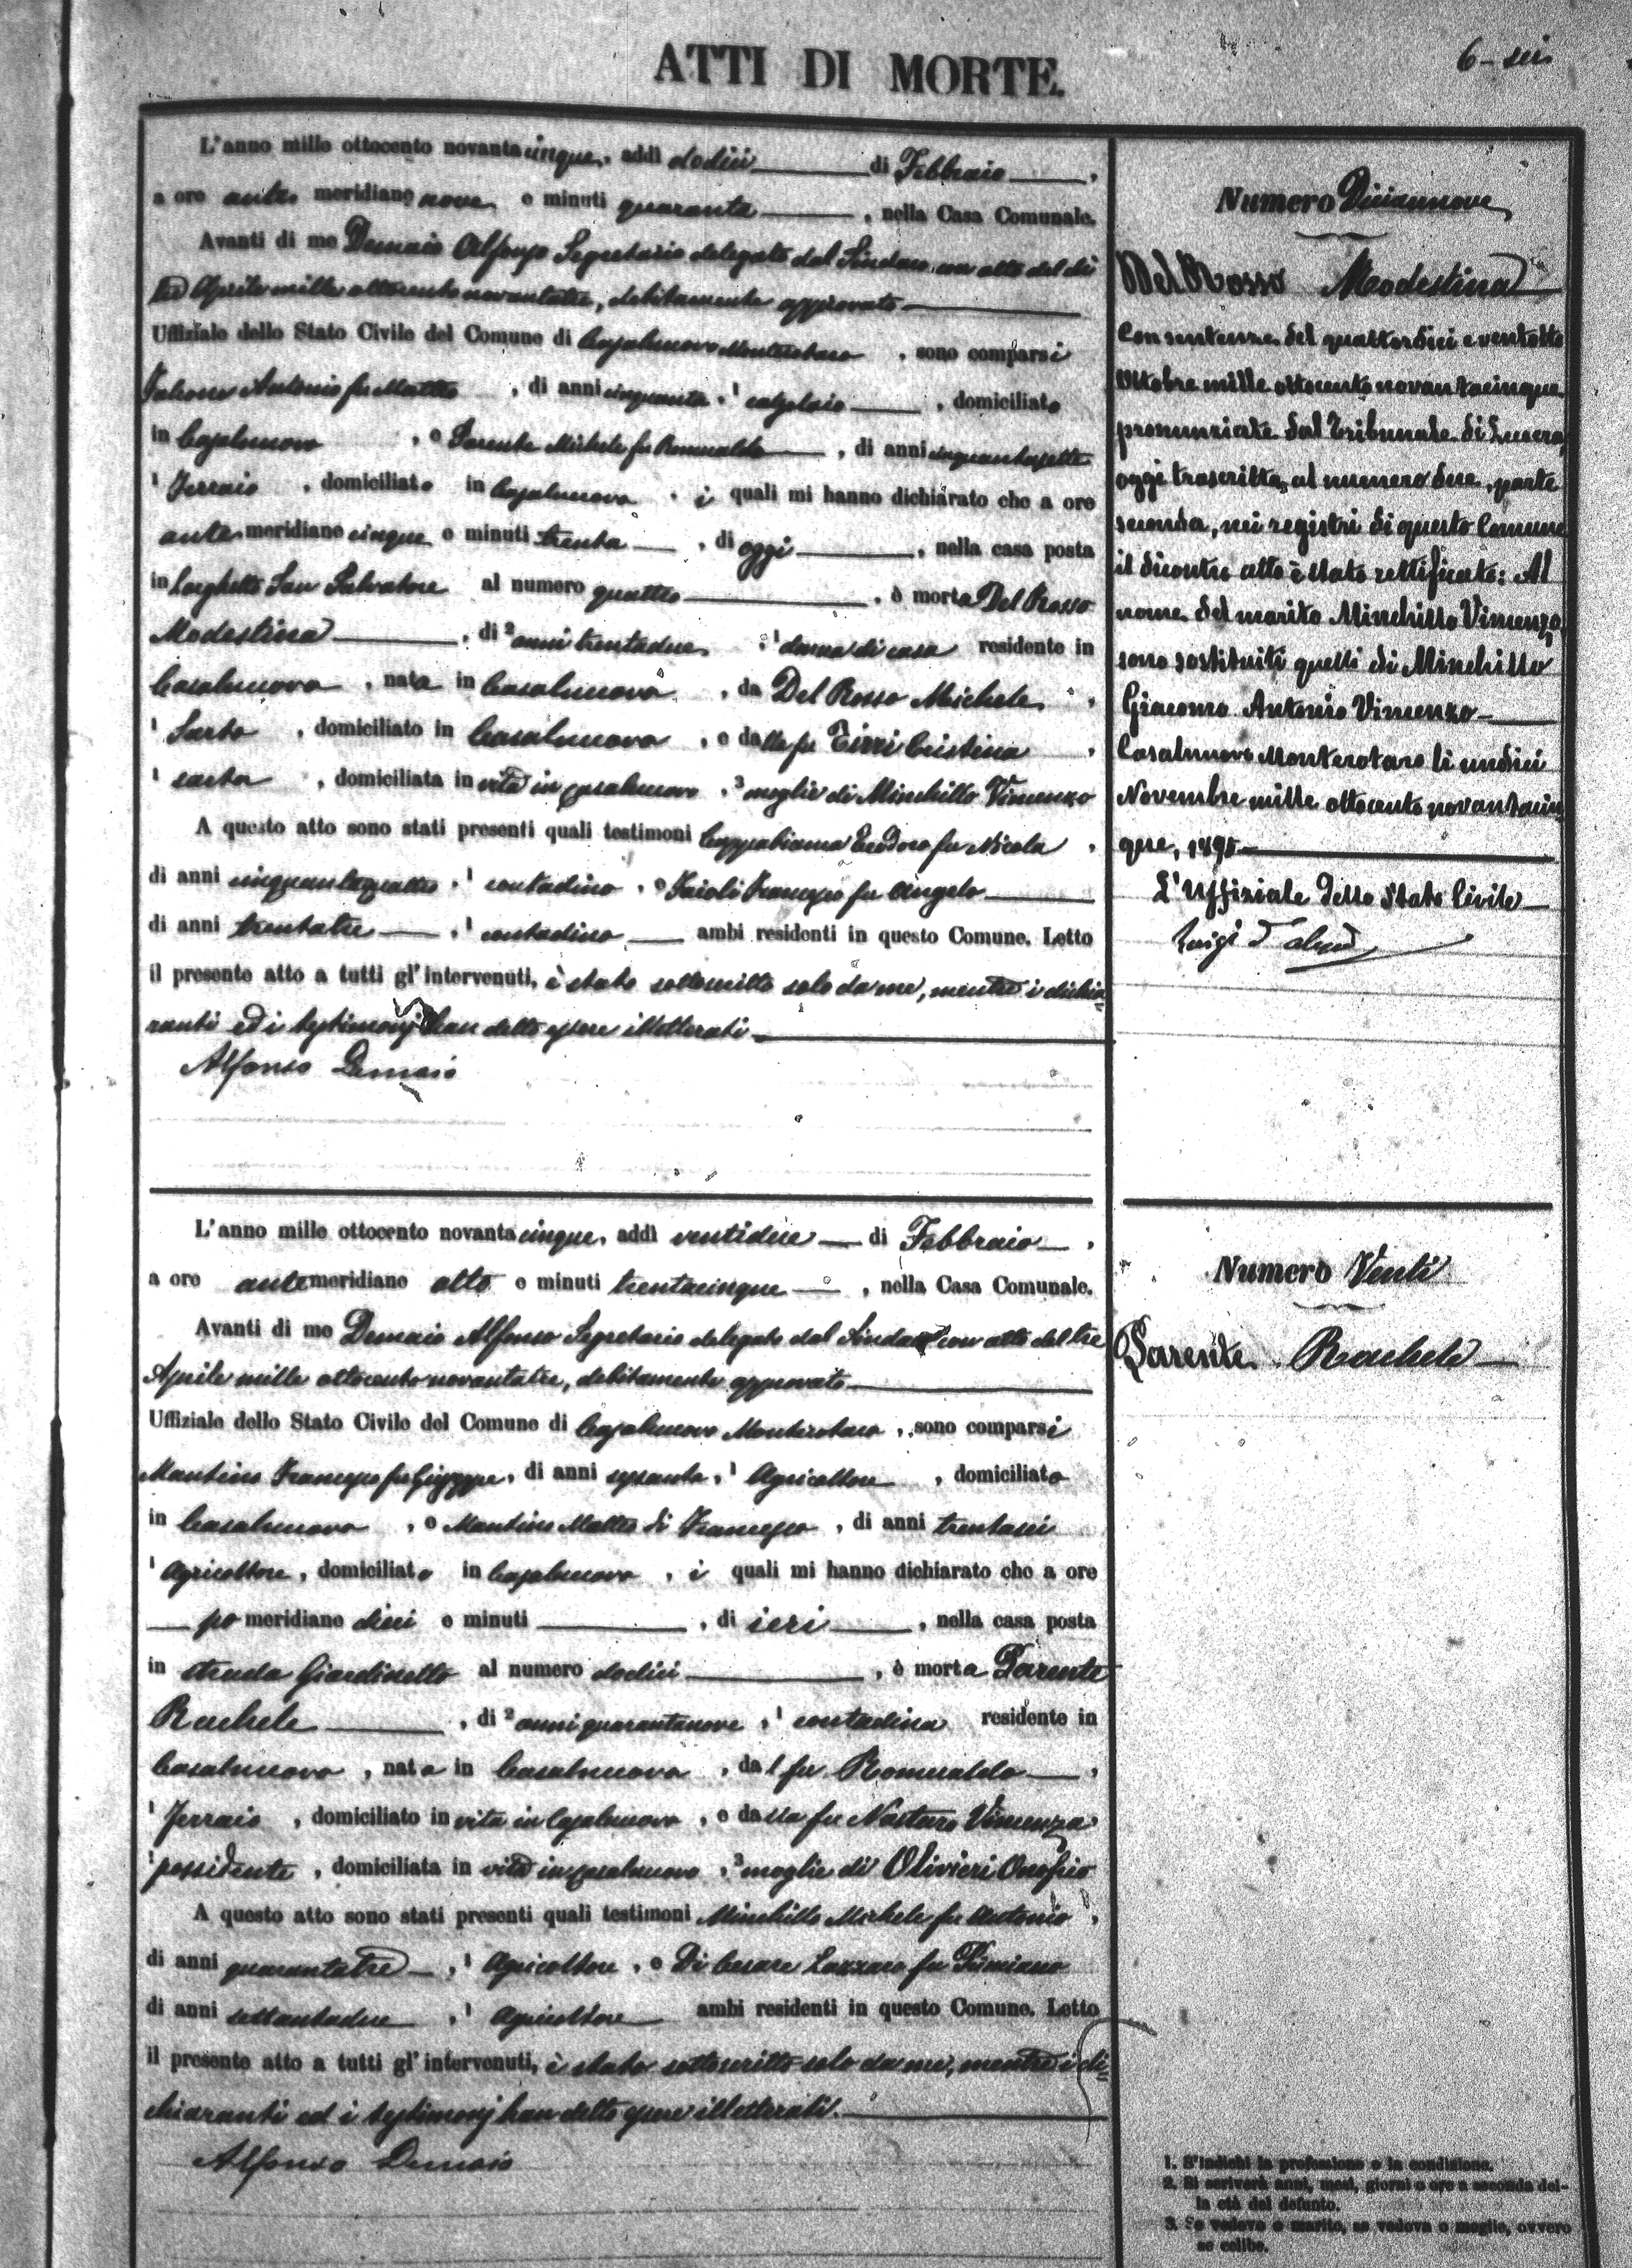 ATTI DI MORTE.
6 - sei
L'anno mille ottocento novantacinque, addì dodici di Febbraio,
a ore antemeridiane nove e minuti quaranta, nella Casa Comunale.
Avanti di me Demaio Alfonso Segretario delegato dal Sindaco con atto del dì
tre Aprile mille ottocento novantatre, debitamente approvato
Uffiziale dello Stato Civile del Comune di Casalnuovo Monterotaro, sono comparsi
Antonio fu Matteo, di anni cinquanta, 1 calzolaio, domiciliato
in Casalnuovo, e Parente Michele fu Romualdo, di anni cinquantasette
1 Ferraio, domiciliato in Casalnuovo, i quali mi hanno dichiarato che a ore
antemeridiane cinque e minuti trenta, di oggi, nella casa posta
in Larghetto San Salvatore al numero quattro, è morta Del Rosso
Modestina, di 2 anni trentadue, 1 donna di casa residente in
Casalnuovo, nata in Casalnuovo, da Del Rosso Michele,
1 Sarto, domiciliato in Casalnuovo, e dalla fu Tirri Cristina,
1 sarta, domiciliata in vita in Casalnuovo, 3 moglie di Minchillo Vincenzo
A questo atto sono stati presenti quali testimoni Cappabianca Teodoro fu Nicola,
di anni cinquantaquattro, 1 contadino, e Francesco fu Angelo
di anni trentatre, 1 contadino ambi residenti in questo Comune. Letto
il presente atto a tutti gl'intervenuti, è stato sottoscritto solo da me, mentre i dichia=
ranti ed i testimonj han detto essere illetterati
Alfonso Demaio
Numero Diciannove
Del Rosso Modestina
Con sentenze del quattordici e ventotto
Ottobre mille ottocento novantacinque
pronunziate dal Tribunale di Lucera,
oggi trascritte, al numero due, parte
seconda, nei registri di questo Comune
il dicontro atto è stato rettificato: Al
nome del marito Minchillo Vincenzo,
sono sostituiti quelli di Minchillo
Giacomo Antonio Vincenzo
Casalnuovo Monterotaro li undici
Novembre mille ottocento novantacin=
que, 1895
L'Uffiziale dello Stato Civile
Luigi
L'anno mille ottocento novantacinque, addì ventidue di Febbraio,
a ore antemeridiane otto e minuti trentacinque, nella Casa Comunale.
Avanti di me Demaio Alfonso Segretario delegato dal Sindaco con atto del tre
Aprile mille ottocento novantatre, debitamente approvato
Uffiziale dello Stato Civile del Comune di Casalnuovo Monterotaro, sono comparsi
Mantino Francesco fu Giuseppe, di anni sessanta, 1 Agricoltore, domiciliato
in Casalnuovo, e Mantino Matteo di Francesco, di anni trentasei
1 Agricoltore, domiciliato in Casalnuovo, i quali mi hanno dichiarato che a ore
pomeridiane dieci e minuti, di ieri, nella casa posta
in strada Giardinetto al numero dodici, è morta Parente
Rachele, di 2 anni quarantanove, 1 contadina residente in
Casalnuovo, nata in Casalnuovo, dal fu Romualdo,
1 Ferraio, domiciliato in vita in Casalnuovo, e dalla fu Notaro Vincenza
1 possidente, domiciliata in vita in Casalnuovo, 3 moglie di Olivieri Onofrio
A questo atto sono stati presenti quali testimoni Minchillo Michele fu Antonio,
di anni quarantatre, 1 Agricoltore, e Di Cesare Lazzaro fu
di anni settantadue, 1 Agricoltore ambi residenti in questo Comune. Letto
il presente atto a tutti gl'intervenuti, è stato sottoscritto solo da me, mentre i di=
chiaranti ed i testimonj han detto essere illetterati.
Alfonso Demaio
Numero Venti
Parente Rachele
1. S'indichi la professione o la condizione.
2. Si scriverà anni, mesi, giorni o ore a seconda del-
la età del defunto.
3. Se vedovo o marito, se vedova o moglie, ovvero
se celibe.